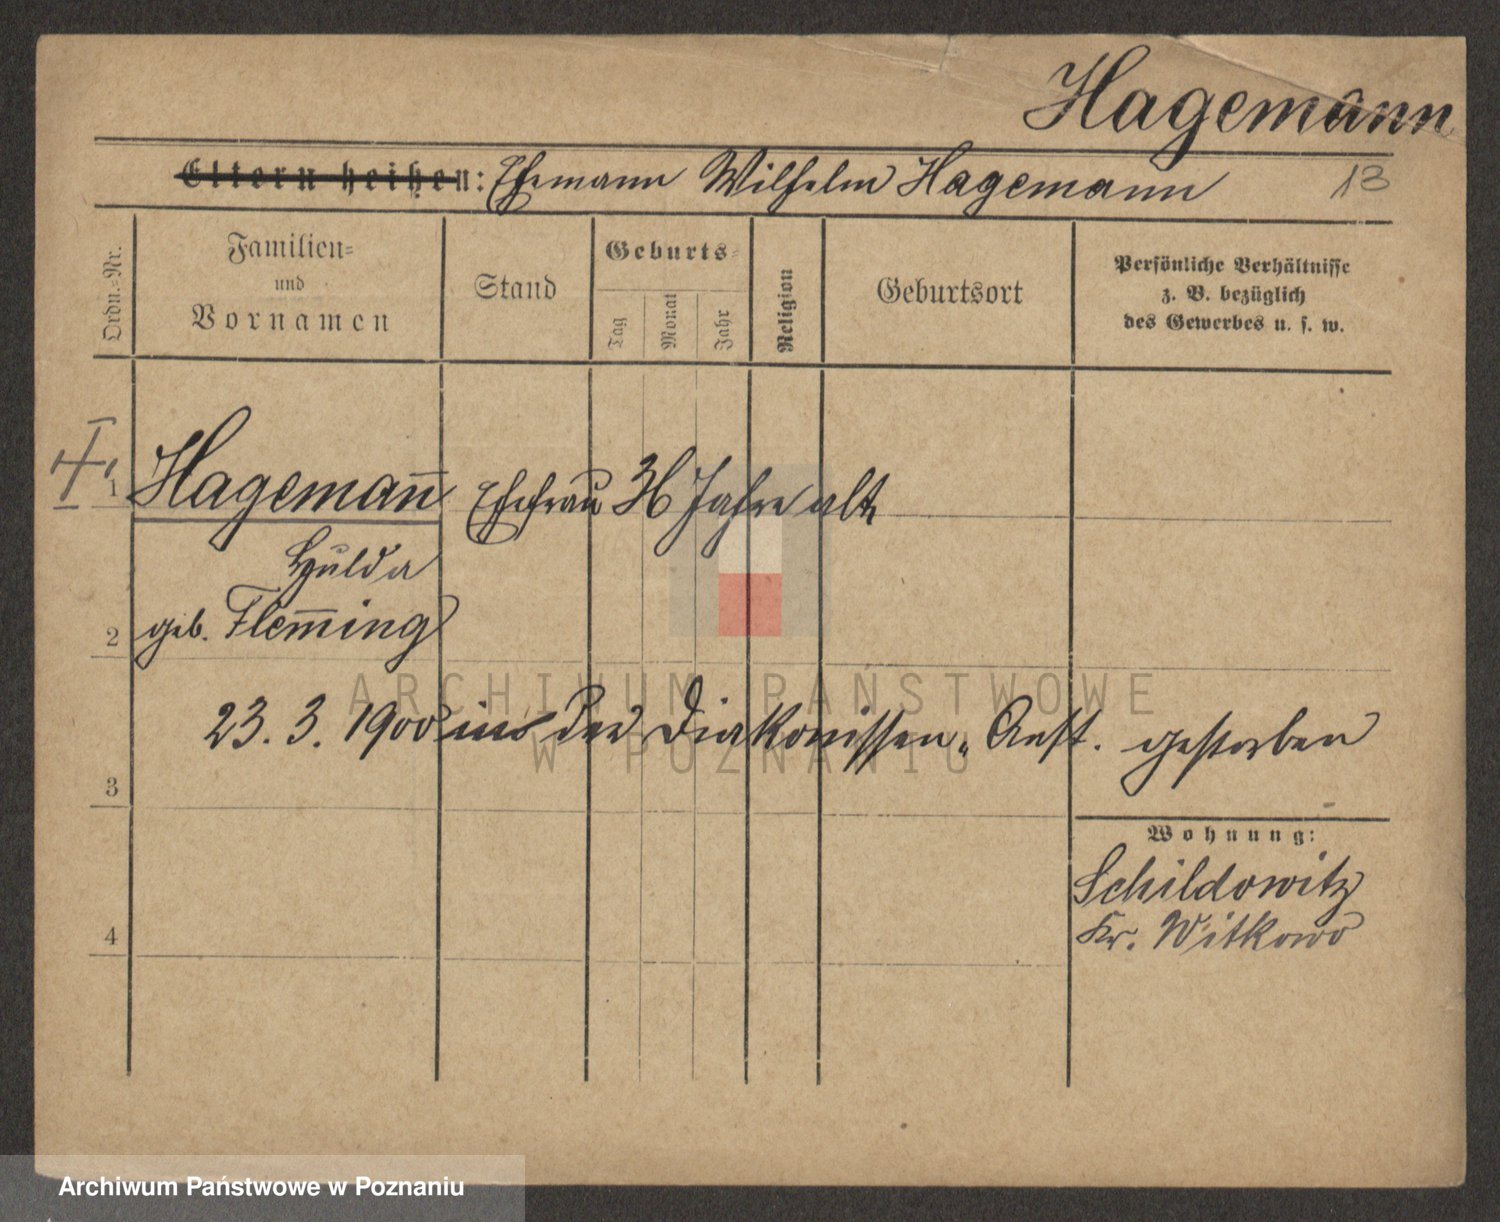 Hagemann
Eltern heißen: Ehemann Wilhelm Hagemann 13
Ordn.=Nr.
Familien=
und
Vornamen
Stand
Geburts=
Tag
Monat
Jahr
Religion
Geburtsort
Persönliche Verhältnisse
z. B. bezüglich
des Gewerbes u. s. w.
1 Hageman̅ Ehefrau 36 Jahre alt
Hulda
2 geb. Flem̅ing
23. 3. 1900 in der Diakonissen Anst. gestorben
3
Wohnung:
Schildowitz
4 Kr. Witkowo
ARCHIWUM PAŃSTWOWE
W POZNANIU
Archiwum Państwowe w Poznaniu